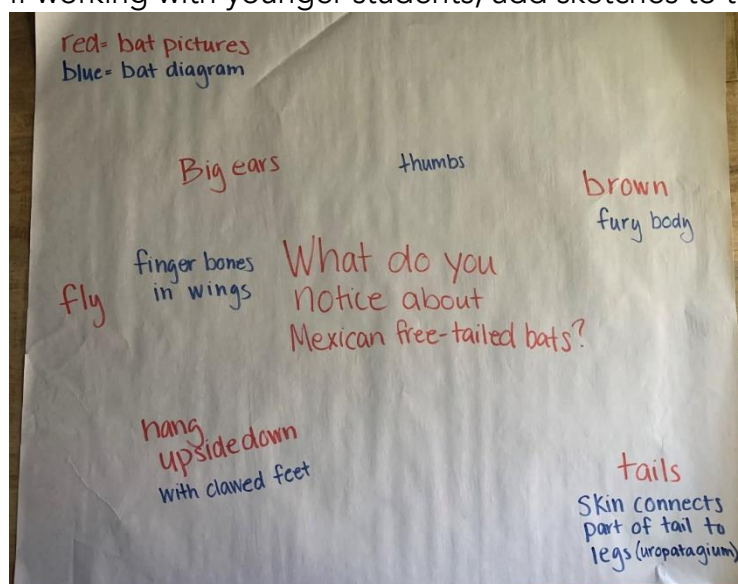 If working with younger students, add sketches to t
red= bat pictures
blue= bat diagram
Big ears
thumbs
brown
fury body
finger bones
in wings
fly
What do you
notice about
Mexican free-tailed bats?
hang
upside down
with clawed feet
tails
Skin connects
part of tail to
legs (uropatagium)